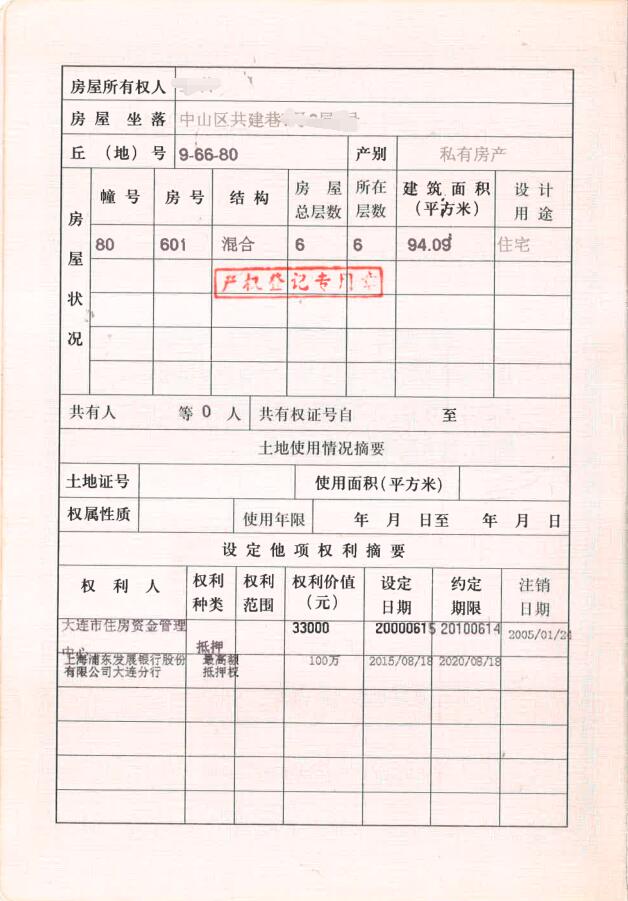 房屋所有权人
房屋 坐落 中山区共建巷
丘（地）号 9-66-80 产别 私有房产
房屋状况
幢号 房号 结构 房屋总层数 所在层数 建筑面积（平方米） 设计用途
80 601 混合 6 6 94.09 住宅
产权登记专用章
共有人 等0人 共有权证号自 至
土地使用情况摘要
土地证号 使用面积(平方米)
权属性质 使用年限 年 月 日至 年 月 日
设定他项权利摘要
权利人 权利种类 权利范围 权利价值（元） 设定日期 约定期限 注销日期
大连市住房资金管理中心 抵押 33000 20000615 20100614 2005/01/24
上海浦东发展银行股份有限公司大连分行 最高额抵押权 100万 2015/08/18 2020/08/18